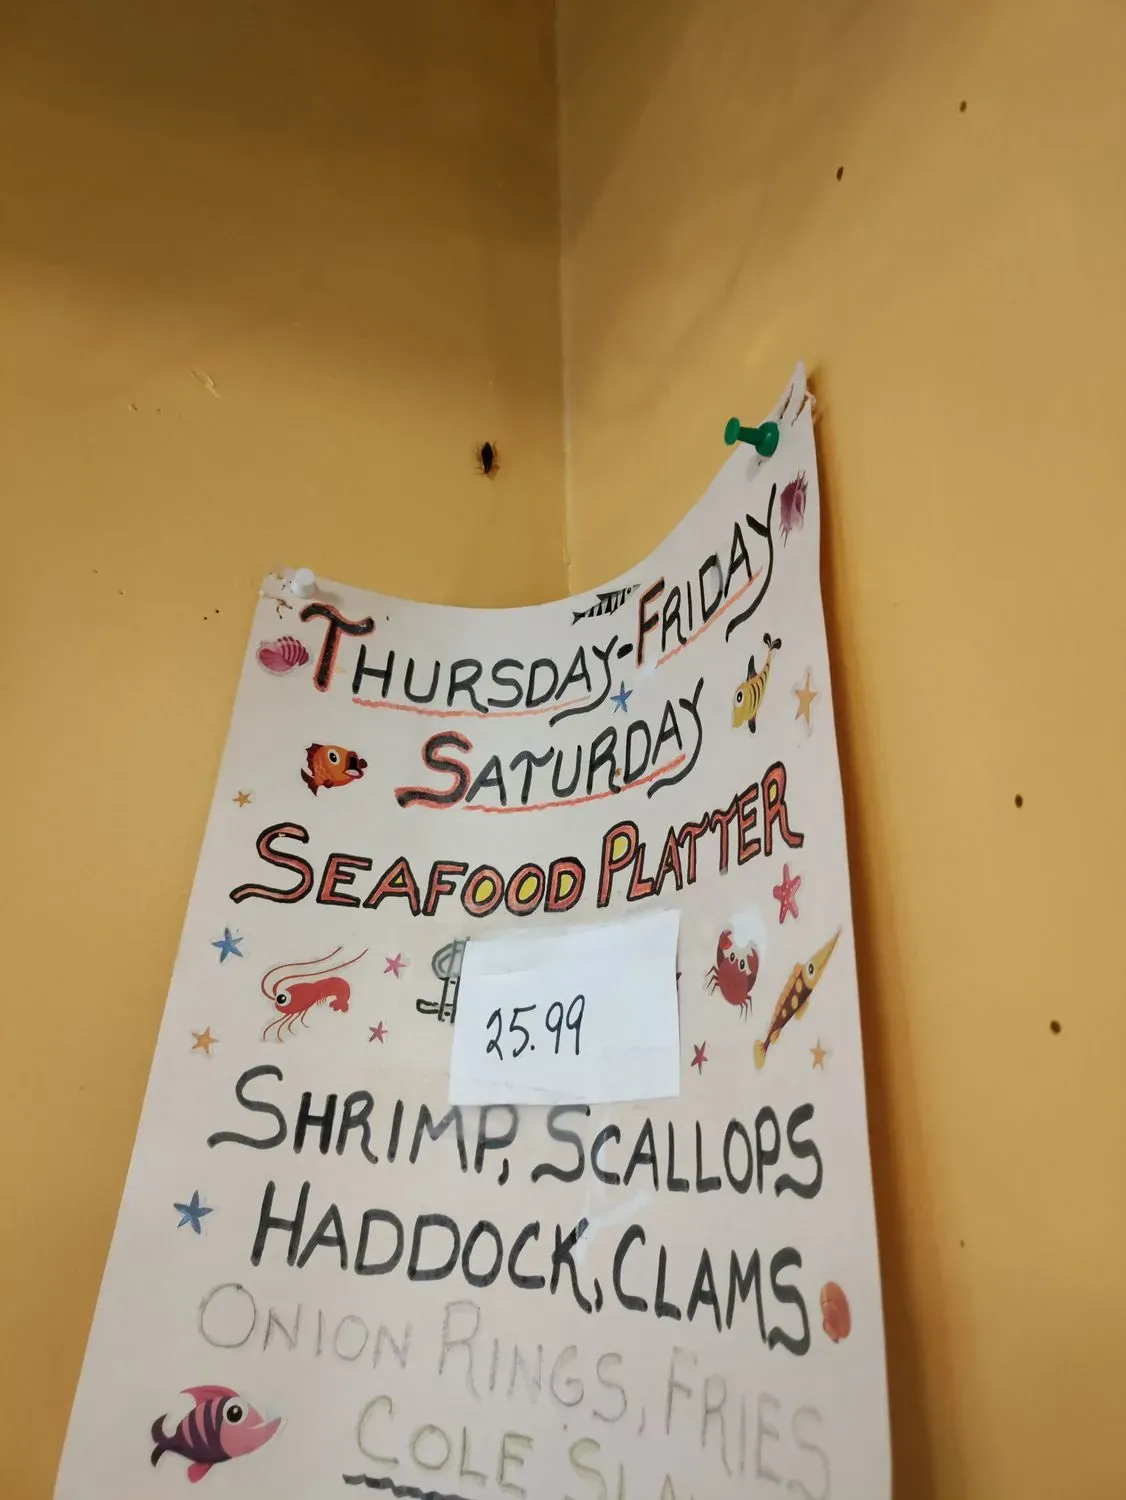 THURSDAY-FRIDAY
SATURDAY
SEAFOOD PLATTER
25.99
SHRIMP, SCALLOPS
HADDOCK, CLAMS
ONION RINGS, FRIES
COLE